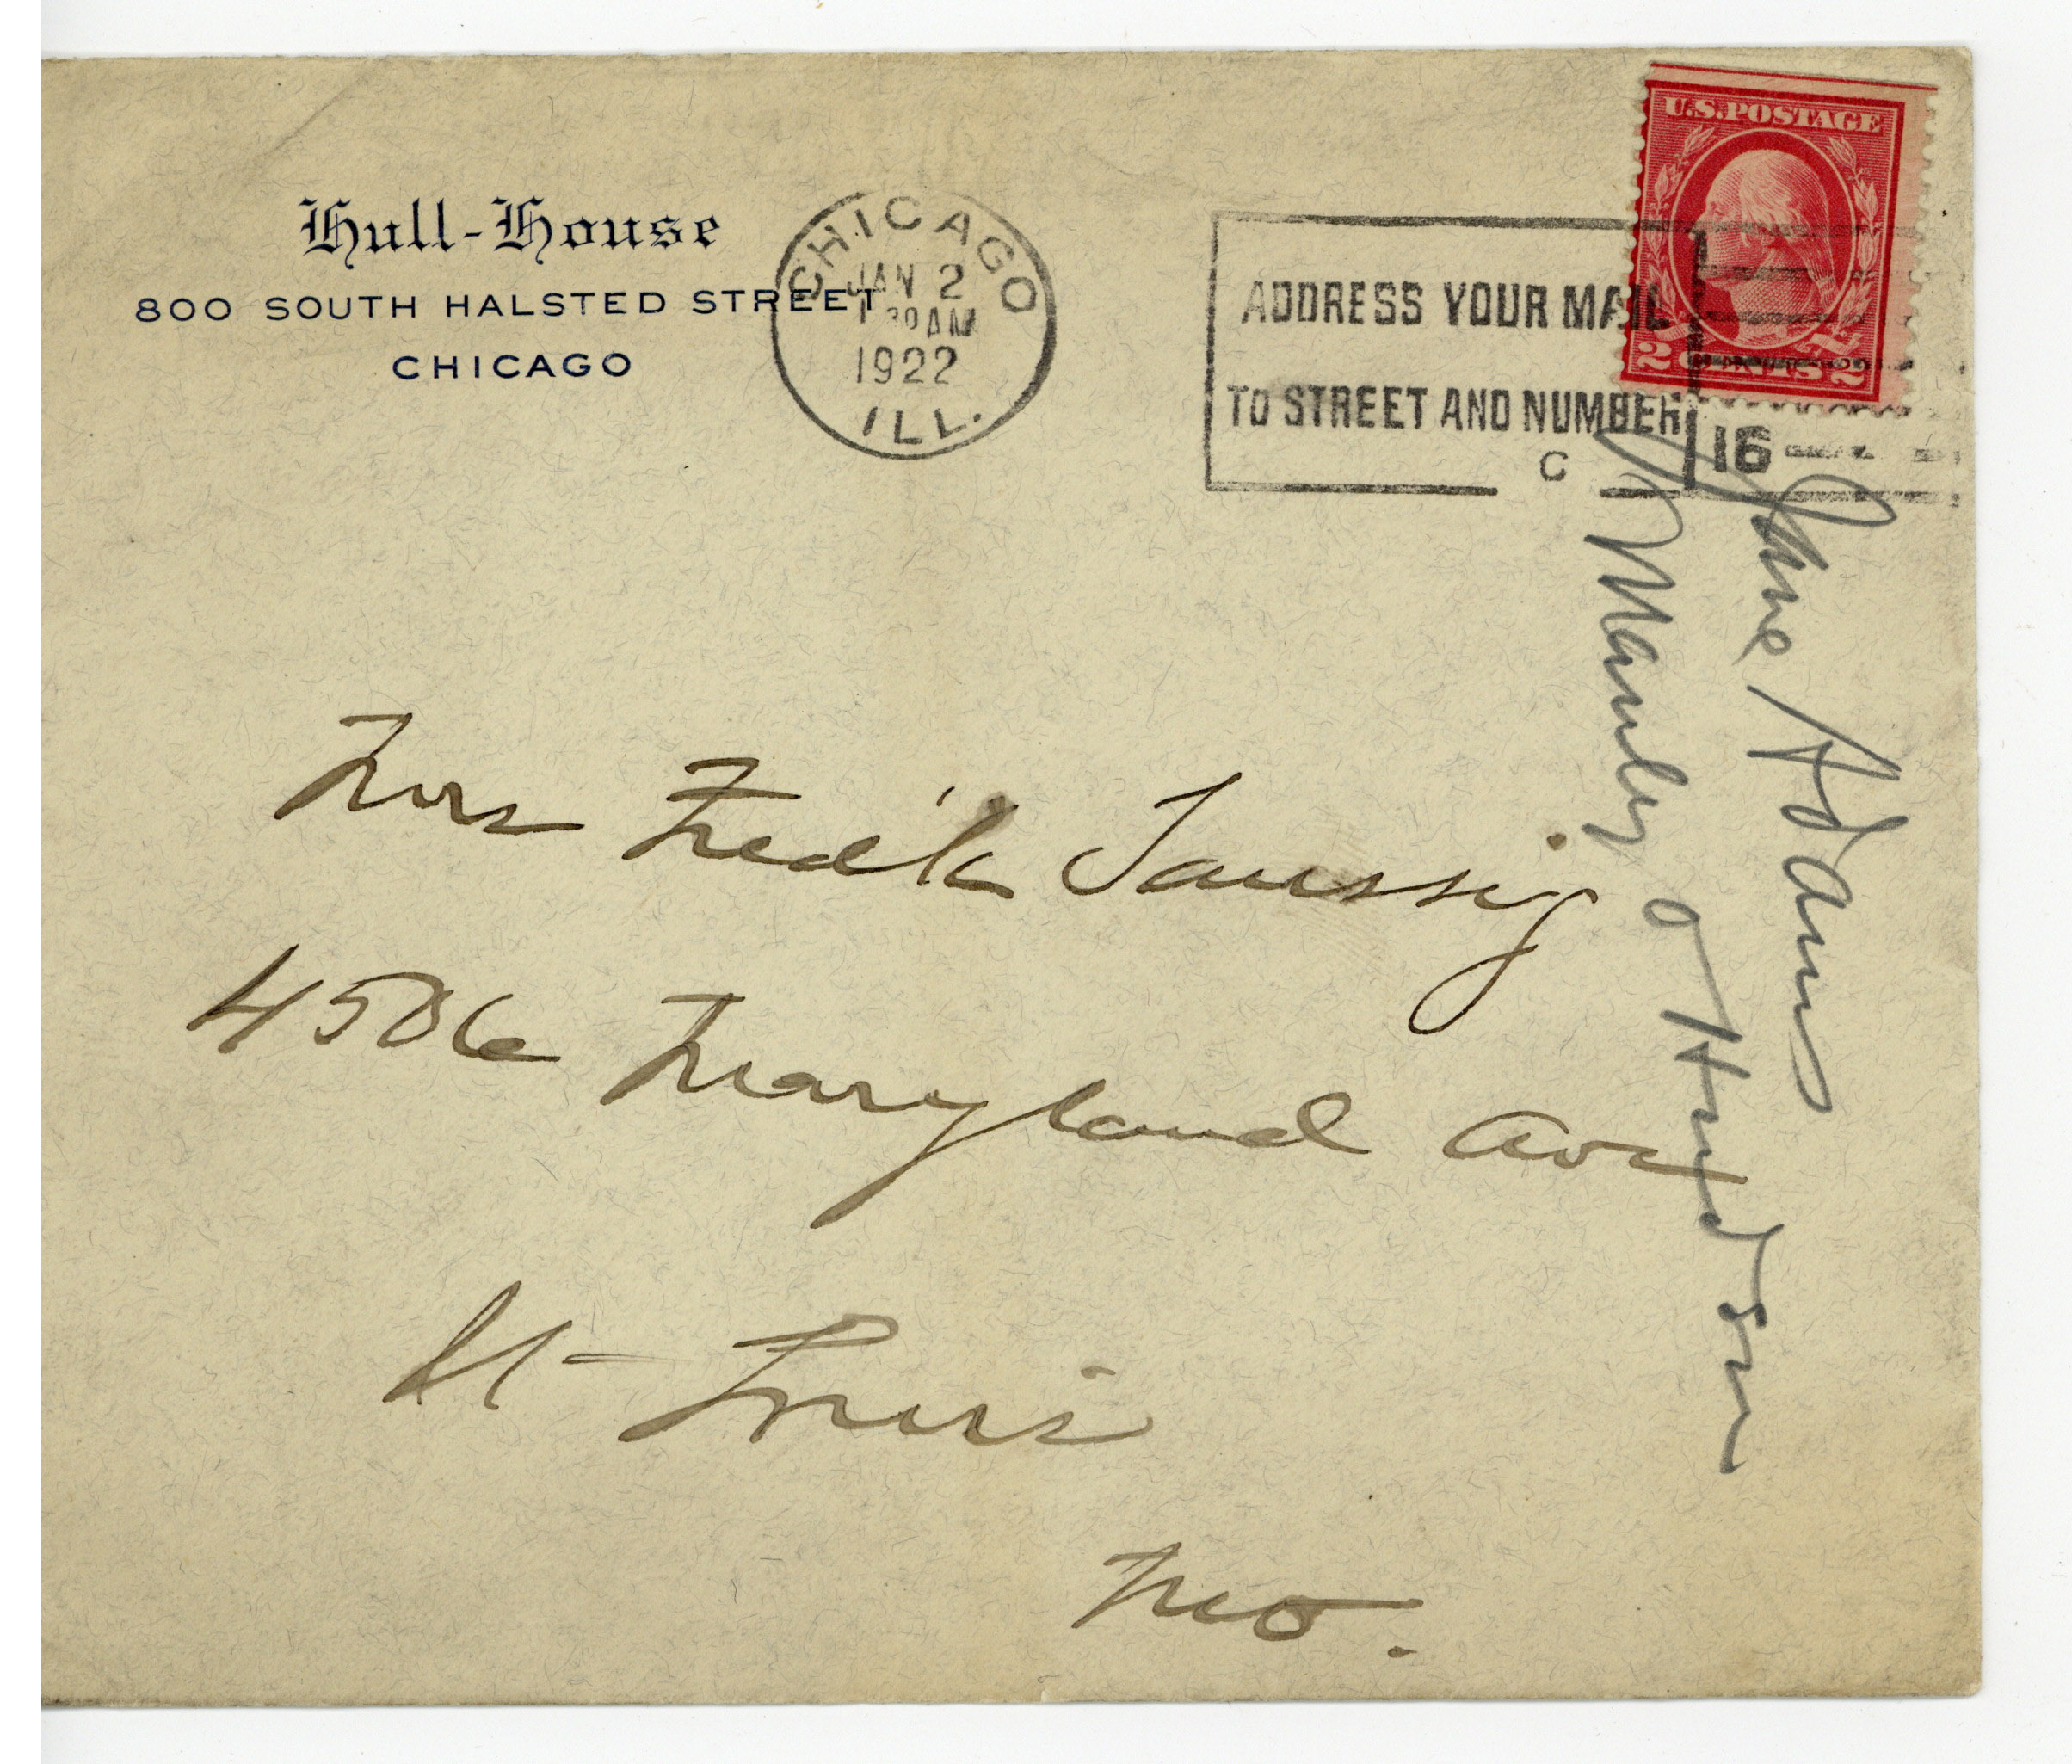 Hull-House
800 SOUTH HALSTED STREET
CHICAGO
CHICAGO
JAN 2
1922
ILL.
ADDRESS YOUR MAIL
TO STREET AND NUMBER
C
16
U.S.POSTAGE
2 CENTS 2
Mrs Fred'k Taussig
4506 Maryland Ave
St- Louis
Mo.
Jane Addams
Manley O Hudson